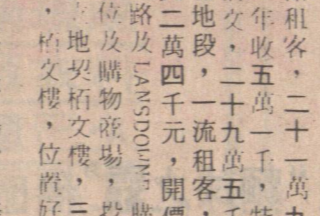 租客，二十一萬九
年收五萬一千，特
文，二十九萬五千
地段，一流租客
二萬四千元，開價
路及LANSDOWNE購
位及購物商場，投
地契柏文樓，三
，柏文樓，位置好